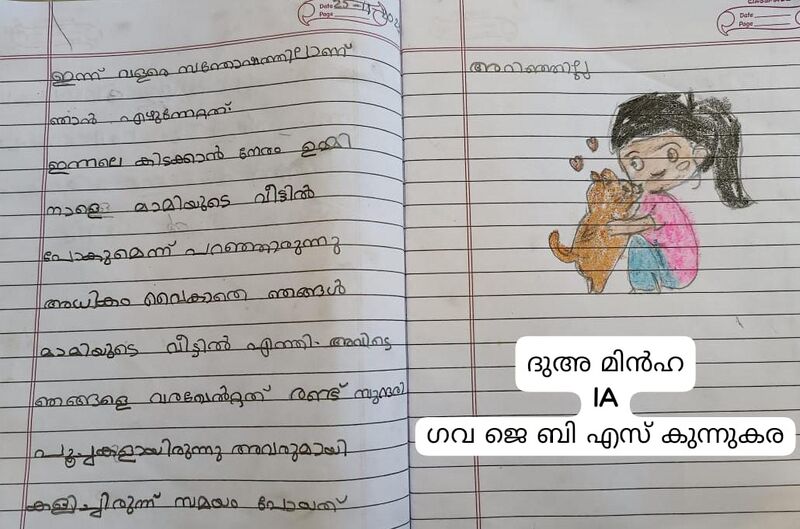 Date 25-11-2024
Page
ഇന്ന് വളരെ സന്തോഷത്തിലാണ്
ഞാൻ എഴുന്നേറ്റത്.
ഇന്നലെ കിടക്കാൻ നേരം ഉമ്മി
നാളെ മാമിയുടെ വീട്ടിൽ
പോകുമെന്ന് പറഞ്ഞാരുന്നു
അധികം വൈകാതെ ഞങ്ങൾ
മാമിയുടെ വീട്ടിൽ എത്തി. അവിടെ
ഞങ്ങളെ വരവേൽറ്റത് രണ്ട് സുന്ദരി
പൂച്ചകളായിരുന്നു അവരുമായി
കളിച്ചിരുന്ന് സമയം പോയത്
Date
Page
അറിഞ്ഞില്ല
ദുഅ മിൻഹ
IA
ഗവ ജെ ബി എസ് കുന്നുകര